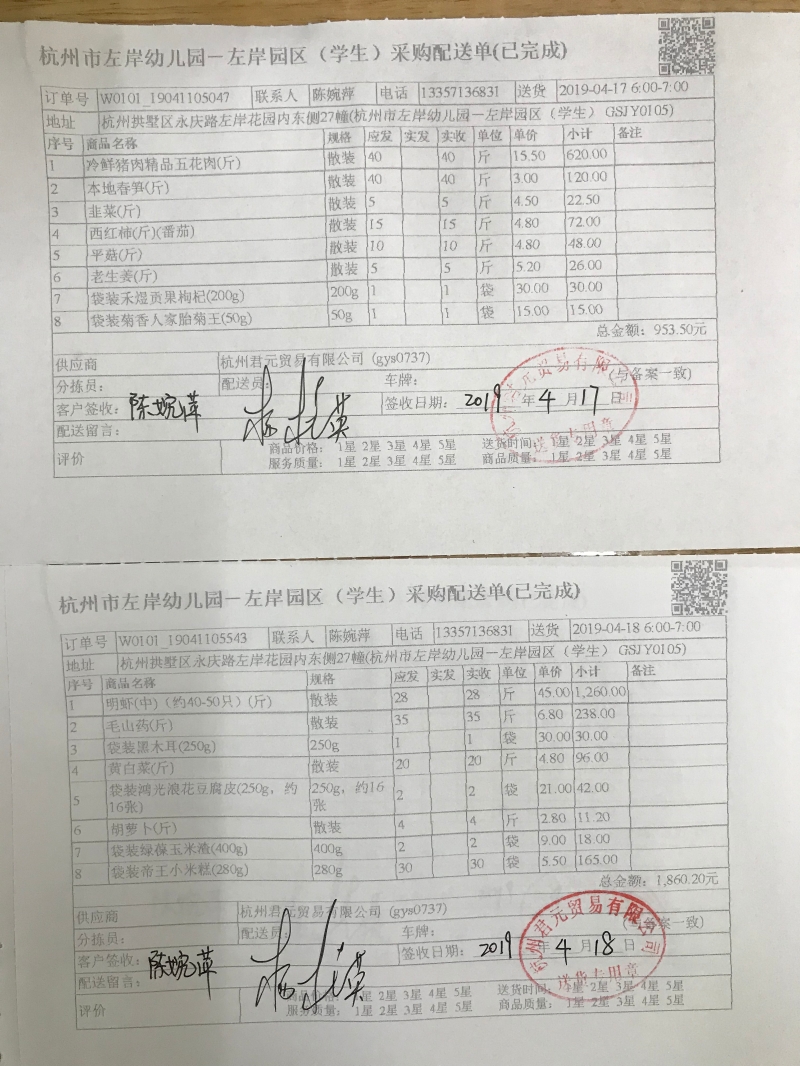 杭州市左岸幼儿园－左岸园区（学生）采购配送单(已完成)
订单号 W0101_19041105047 联系人 陈婉萍 电话 13357136831 送货 2019-04-17 6:00-7:00
地址 杭州拱墅区永庆路左岸花园内东侧27幢(杭州市左岸幼儿园－左岸园区（学生） GSJY0105)
序号 商品名称 规格 应发 实发 实收 单位 单价 小计 备注
1 冷鲜猪肉精品五花肉(斤) 散装 40 40 斤 15.50 620.00
2 本地春笋(斤) 散装 40 40 斤 3.00 120.00
3 韭菜(斤) 散装 5 5 斤 4.50 22.50
4 西红柿(斤)(番茄) 散装 15 15 斤 4.80 72.00
5 平菇(斤) 散装 10 10 斤 4.80 48.00
6 老生姜(斤) 散装 5 5 斤 5.20 26.00
7 袋装禾煜贡果枸杞(200g) 200g 1 1 袋 30.00 30.00
8 袋装菊香人家胎菊王(50g) 50g 1 1 袋 15.00 15.00
总金额：953.50元
供应商 杭州君元贸易有限公司 (gys0737)
分拣员： 配送员 车牌： (与备案一致)
客户签收：陈婉萍 签收日期： 2019 年 4 月 17 日
配送留言：
评价 商品价格： 1星 2星 3星 4星 5星 送货时间： 1星 2星 3星 4星 5星
服务质量： 1星 2星 3星 4星 5星 商品质量： 1星 2星 3星 4星 5星
元贸易有限
送货专用章
杭州市左岸幼儿园－左岸园区（学生）采购配送单(已完成)
订单号 W0101_19041105543 联系人 陈婉萍 电话 13357136831 送货 2019-04-18 6:00-7:00
地址 杭州拱墅区永庆路左岸花园内东侧27幢(杭州市左岸幼儿园－左岸园区（学生） GSJY0105)
序号 商品名称 规格 应发 实发 实收 单位 单价 小计 备注
1 明虾(中)（约40-50只）(斤) 散装 28 28 斤 45.00 1,260.00
2 毛山药(斤) 散装 35 35 斤 6.80 238.00
3 袋装黑木耳(250g) 250g 1 1 袋 30.00 30.00
4 黄白菜(斤) 散装 20 20 斤 4.80 96.00
5 袋装鸿光浪花豆腐皮(250g，约16张) 250g，约16张 2 2 袋 21.00 42.00
6 胡萝卜(斤) 散装 4 4 斤 2.80 11.20
7 袋装绿葆玉米渣(400g) 400g 2 2 袋 9.00 18.00
8 袋装帝王小米糕(280g) 280g 30 30 袋 5.50 165.00
总金额：1,860.20元
供应商 杭州君元贸易有限公司 (gys0737)
分拣员： 配送员 车牌： (与备案一致)
客户签收：陈婉萍 签收日期： 2019 年 4 月 18 日
配送留言：
评价 商品价格： 1星 2星 3星 4星 5星 送货时间： 1星 2星 3星 4星 5星
服务质量： 1星 2星 3星 4星 5星 商品质量： 1星 2星 3星 4星 5星
杭州君元贸易有限公司
送货专用章